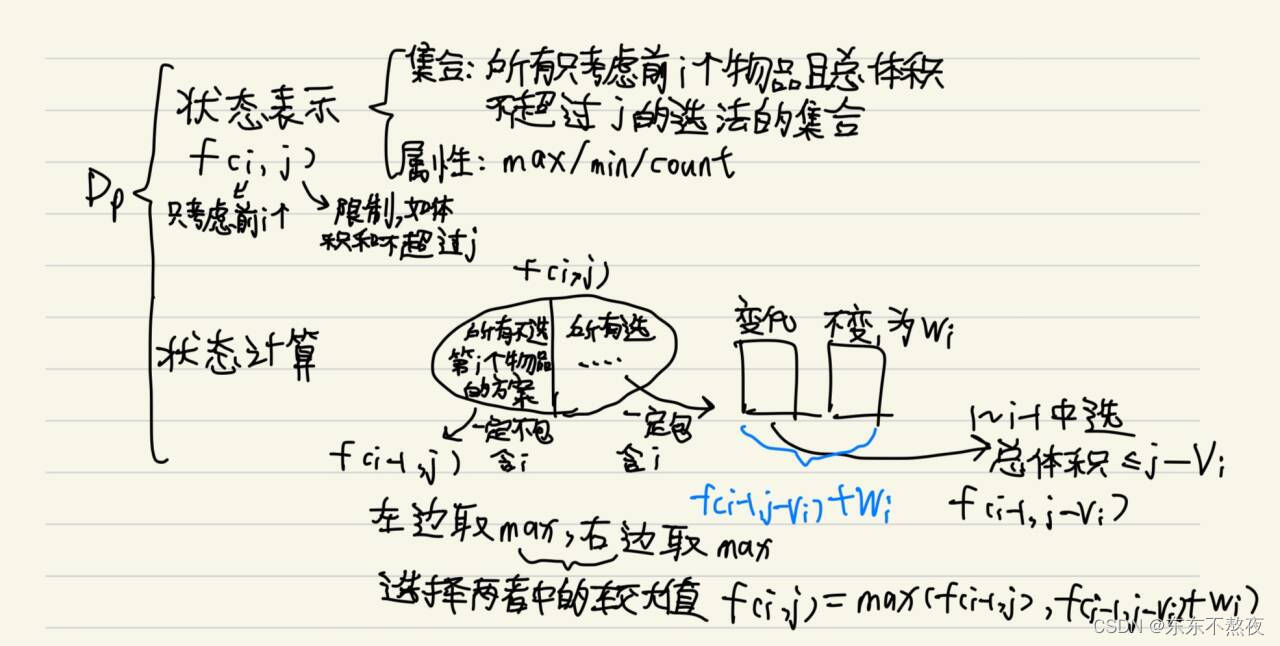 Dp
状态表示
f(i,j)
只考虑前i个
限制,如体
积和不超过j
集合:所有只考虑前i个物品且总体积
不超过j的选法的集合
属性:max/min/count
状态计算
f(i,j)
所有不选
第i个物品
的方案
所有选
....
一定不包
含i
f(i-1,j)
一定包
含i
变化
不变,为Wi
1~i-1中选
总体积≤j-Vi
f(i-1,j-Vi)
f(i-1,j-Vi)+Wi
左边取max,右边取max
选择两者中的较大值 f(i,j)=max(f(i-1,j),f(i-1,j-Vi)+Wi)
CSDN @东东不熬夜